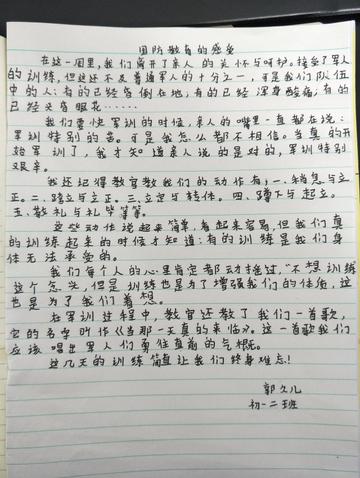 国防教育的感受
在这一周里，我们离开了亲人的关怀与呵护。接受了军人
的训练，但这还不及普通军人的十分之一，可是我们队伍
中的人：有的已经昏倒在地；有的已经浑身酸痛；有的
已经头昏眼花……
我们要快军训的时候，亲人的嘴里一直都在说：
军训特别的苦。可是我怎么都不相信。当真的开
始军训了，我才知道亲人说的是对的，军训特别
艰辛。
我还记得教官教我们的动作有：一、稍息与立
正。二、跨立与立正。三、立定与转体。四、蹲下与起立。
五、敬礼与礼毕等等。
这些动作说起来简单，看起来容易，但我们真
的训练起来的时候才知道：有的训练是我们身
体无法承受的。
我们每个人的心里肯定都动摇过，“不想训练”
这个念头，但是训练也是为了增强我们的体质，这
也是为了我们着想。
在军训过程中，教官还教了我们一首歌，
它的名字叫作《当那一天真的来临》。这一首歌我们
应该唱出军人们勇往直前的气概。
这几天的训练简直让我们终身难忘！
郭久儿
初一二班